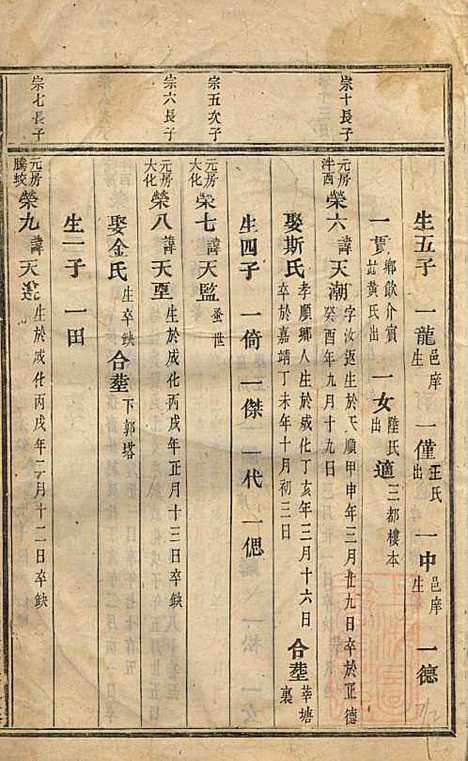 生五子 一龍邑庠生 一僅王氏出 一中邑庠生 一德
一貫鄉飲介賓黃氏出 一女陸氏出適三都樓本
宗十長子
元房泮西榮六諱天潮字汝 生於天順甲申年三月廿九日卒於正德癸酉年九月十九日
娶斯氏孝順鄉人生於成化丁亥年三月十六日卒於嘉靖丁未年十月初三日 合塟莘塘裏
生四子 一倚 一傑 一代 一偲
宗五次子
元房大化榮七諱天監蚤世
宗六長子
元房大化榮八諱天 生於成化丙戌年正月十三日卒鈌
娶金氏生卒鈌 合塟下郭塔
生一子 一田
宗七長子
元房騰蛟榮九諱天 生於成化丙戌年二月十二日卒鈌